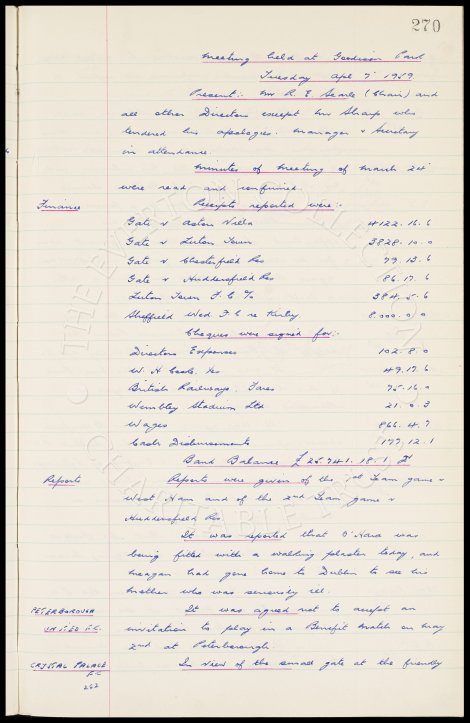 270
Meeting held at Goodison Park
Tuesday Apl 7th 1959.
Present:- Mr R. E. Searle (Chair) and
all other Directors except Mr Sharp who
tendered his apologies. Manager & Secretary
in attendance.
Minutes of meeting of March 24th
were read and confirmed.
Finance
Receipts reported were:-
Gate v Aston Villa 4122. 16. 6
Gate v Luton Town 3828. 10. 0
Gate v Chesterfield Res 79. 13. 6
Gate v Huddersfield Res 86. 17. 6
Luton Town F C % 384. 5. 6
Sheffield Wed F C re Kirby 8.000. 0. 0
Cheques were signed for:-
Directors Expenses 102. 8. 0
W. H. Cook. 49. 17. 6
British Railways. Fares 75. 16. 0
Wembley Stadium Ltd 21. 0. 3
Wages 866. 4. 7
Cash Disbursements 177. 12. 1
Bank Balance £25741. 18. 1
Reports
Reports were given of the 1st Team game v
West Ham and of the 2nd Team game v
Huddersfield Res
It was reported that O'Hara was
being fitted with a walking plaster today, and
Meagan had gone home to Dublin to see his
mother who was seriously ill.
PETERBOROUGH
UNITED F.C.
It was agreed not to accept an
invitation to play in a Benefit match on May
2nd at Peterborough.
CRYSTAL PALACE
F.C
262
In view of the small gate at the friendly
THE EVERTON COLLECTION
CHARITABLE TRUST